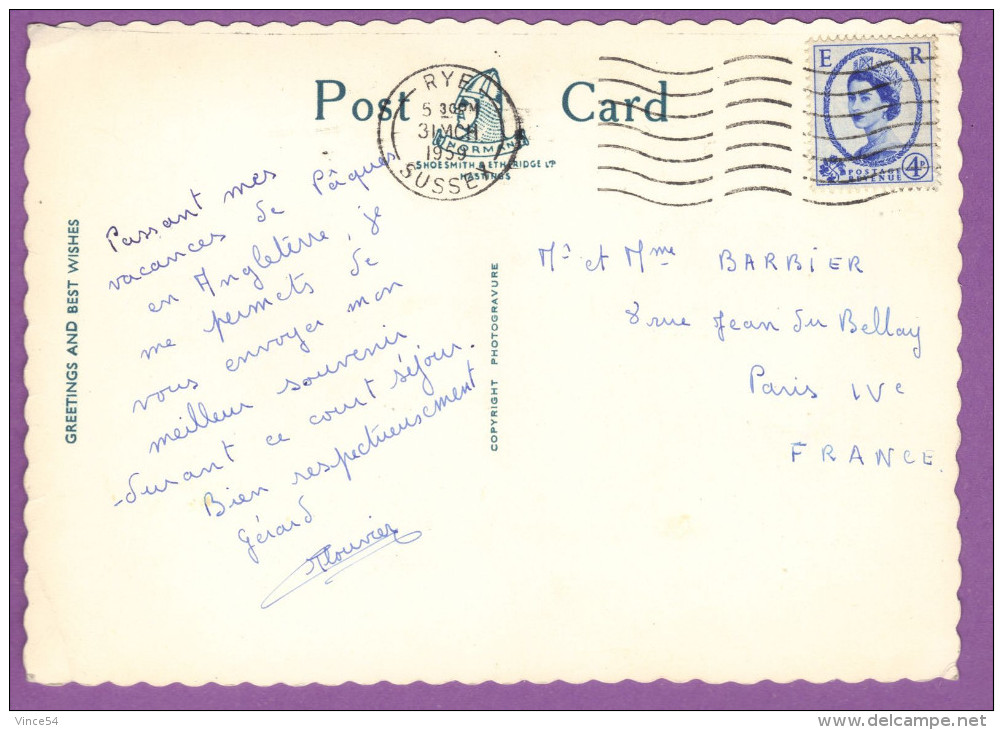 Post Card
RYE
5 30PM
31 MCH
1959
SUSSEX
NORMAN
SHOESMITH & ETHERIDGE LTD
HASTINGS
E R
POSTAGE
REVENUE
4D
GREETINGS AND BEST WISHES
Passant mes
vacances de Pâques
en Angleterre, je
me permets de
vous envoyer mon
meilleur souvenir
durant ce court séjour.
Bien respectueusement
Gérard
COPYRIGHT PHOTOGRAVURE
Mr et Mme BARBIER
8 rue Jean du Bellay
Paris IVe
FRANCE.
Vince54
delcampe.net